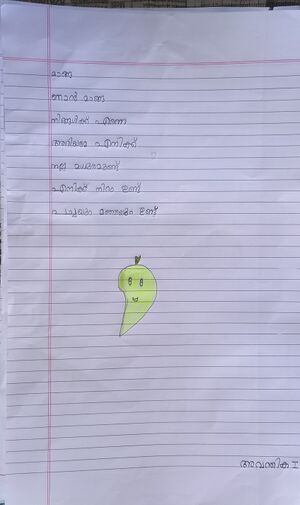 മാങ്ങ
ഞാൻ മാങ്ങ
നിങ്ങൾക്ക് എന്നെ
അറിയാമോ എനിക്ക്
നല്ല മധുരമുണ്ട്
എനിക്ക് നിറം ഉണ്ട്
പച്ചയും മഞ്ഞയും ഉണ്ട്
അവന്തിക I